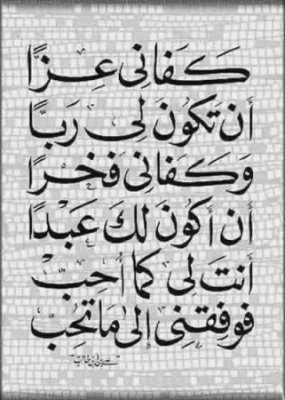 كَفَانِى عِزًّا
أَن تَكُونَ لِى رَبًّا
وَكَفَانِى فَخْرًا
أَن أَكُونَ لَكَ عَبْدًا
أَنتَ لِى كَمَا أُحِبُّ
فَوَفِّقْنِى إِلَى مَا تُحِبُّ